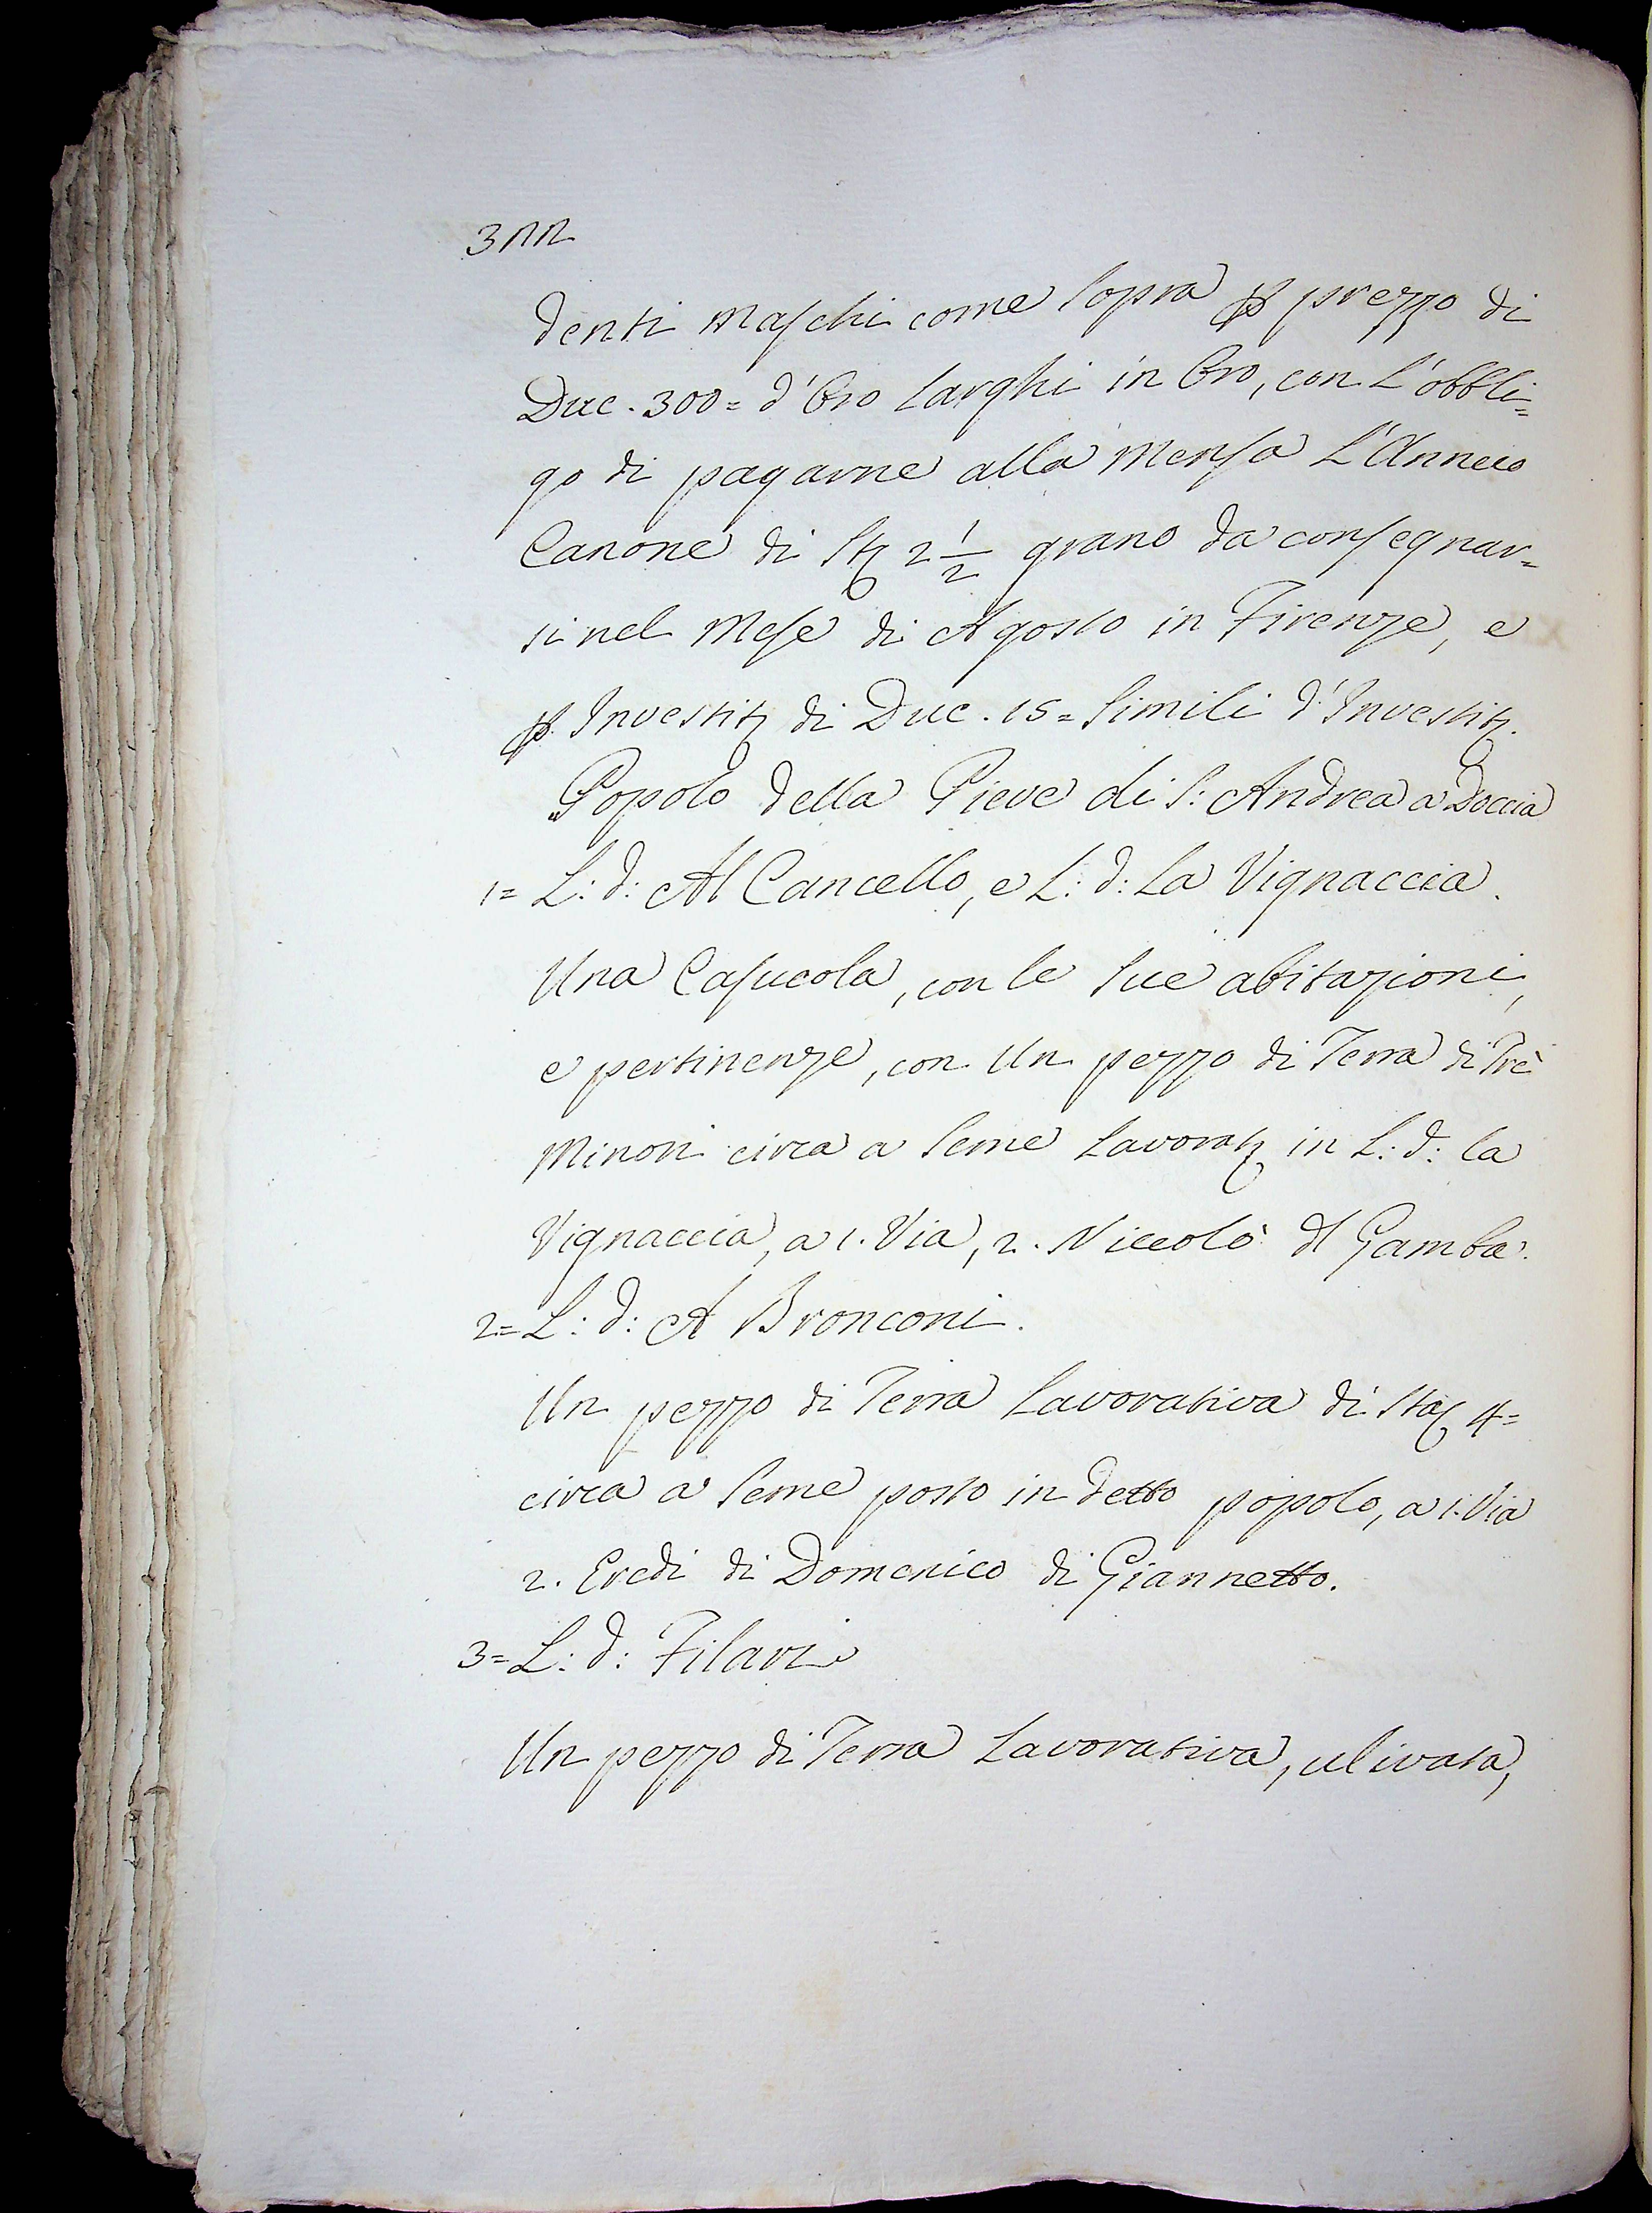 322
denti Maschi come sopra p prezzo di
Duc. 300= d'Oro Larghi in Oro, con L'obbli=
go di pagarne alla Mensa L'Annuo
Canone di Sta 2 1/2 grano da consegnar=
si nel Mese di Agosto in Firenze, e
p Investit. di Duc. 15= Simili d'Investit.
Popolo della Pieve di S: Andrea a Doccia
1= L: d: Al Cancello, e L: d: La Vignaccia.
Una Casucola, con le sue abitazioni,
e pertinenze, con Un pezzo di Terra di Trè
Minori circa a Seme Lavorat. in L: d: la
Vignaccia, a 1. Via, 2. Niccolò del Gamba.
2= L: d: A Bronconi.
Un pezzo di Terra Lavorativa di Sta 4=
circa a Seme posto in detto popolo, a 1. Via
2. Eredi di Domenico di Giannetto.
3= L: d: Filari
Un pezzo di Terra Lavorativa, ulivata,